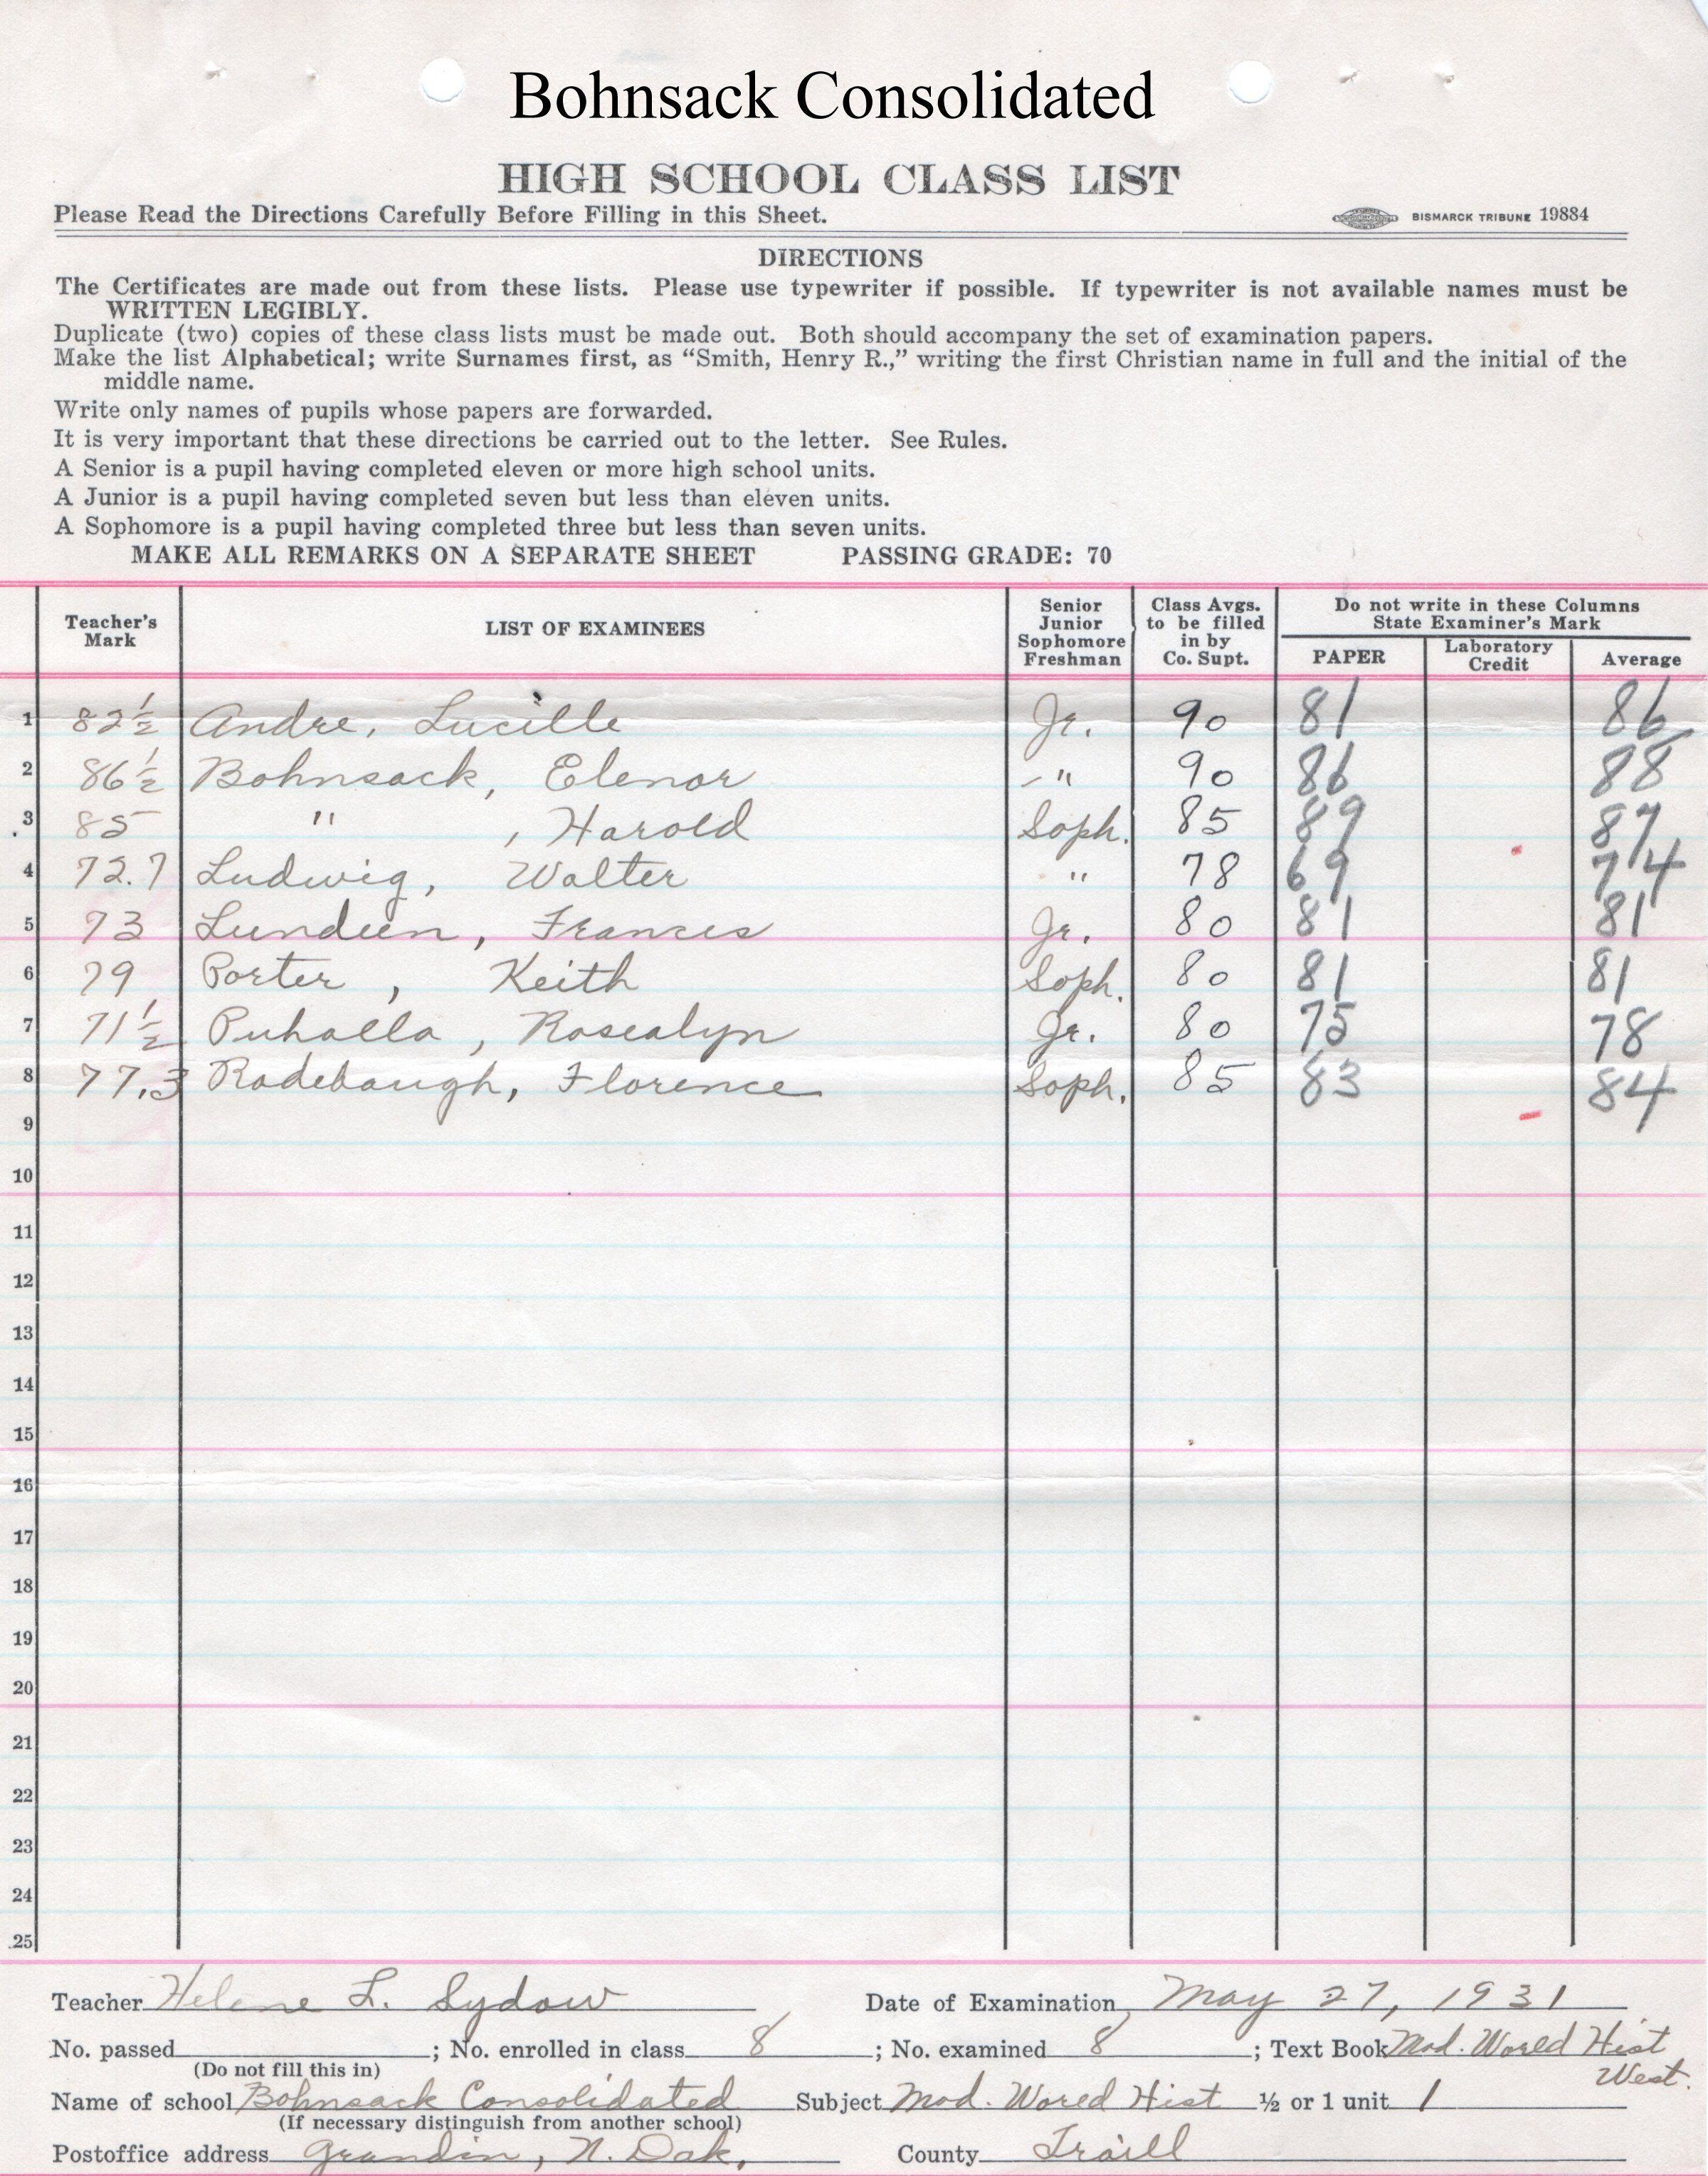 Bohnsack Consolidated
HIGH SCHOOL CLASS LIST
Please Read the Directions Carefully Before Filling in this Sheet. BISMARCK TRIBUNE 19884
DIRECTIONS
The Certificates are made out from these lists. Please use typewriter if possible. If typewriter is not available names must be
WRITTEN LEGIBLY.
Duplicate (two) copies of these class lists must be made out. Both should accompany the set of examination papers.
Make the list Alphabetical; write Surnames first, as “Smith, Henry R.,” writing the first Christian name in full and the initial of the
middle name.
Write only names of pupils whose papers are forwarded.
It is very important that these directions be carried out to the letter. See Rules.
A Senior is a pupil having completed eleven or more high school units.
A Junior is a pupil having completed seven but less than eleven units.
A Sophomore is a pupil having completed three but less than seven units.
MAKE ALL REMARKS ON A SEPARATE SHEET PASSING GRADE: 70
Teacher's Mark LIST OF EXAMINEES Senior Junior Sophomore Freshman Class Avgs. to be filled in by Co. Supt. Do not write in these Columns State Examiner's Mark PAPER Laboratory Credit Average
1 82½ Andre, Lucille Jr. 90 81 86
2 86½ Bohnsack, Elenor " 90 86 88
3 85 " , Harold Soph. 85 89 87
4 72.7 Ludwig, Walter " 78 69 74
5 73 Lundeen, Frances Jr. 80 81 81
6 79 Porter, Keith Soph. 80 81 81
7 71½ Puhalla, Rosealyn Jr. 80 75 78
8 77.3 Radebaugh, Florence Soph. 85 83 84
9
10
11
12
13
14
15
16
17
18
19
20
21
22
23
24
25
Teacher Helene L. Sydow Date of Examination May 27, 1931
No. passed ; No. enrolled in class 8 ; No. examined 8 ; Text Book Mod. World Hist
(Do not fill this in) West.
Name of school Bohnsack Consolidated Subject Mod. World Hist ½ or 1 unit 1
(If necessary distinguish from another school)
Postoffice address Grandin, N. Dak. County Traill